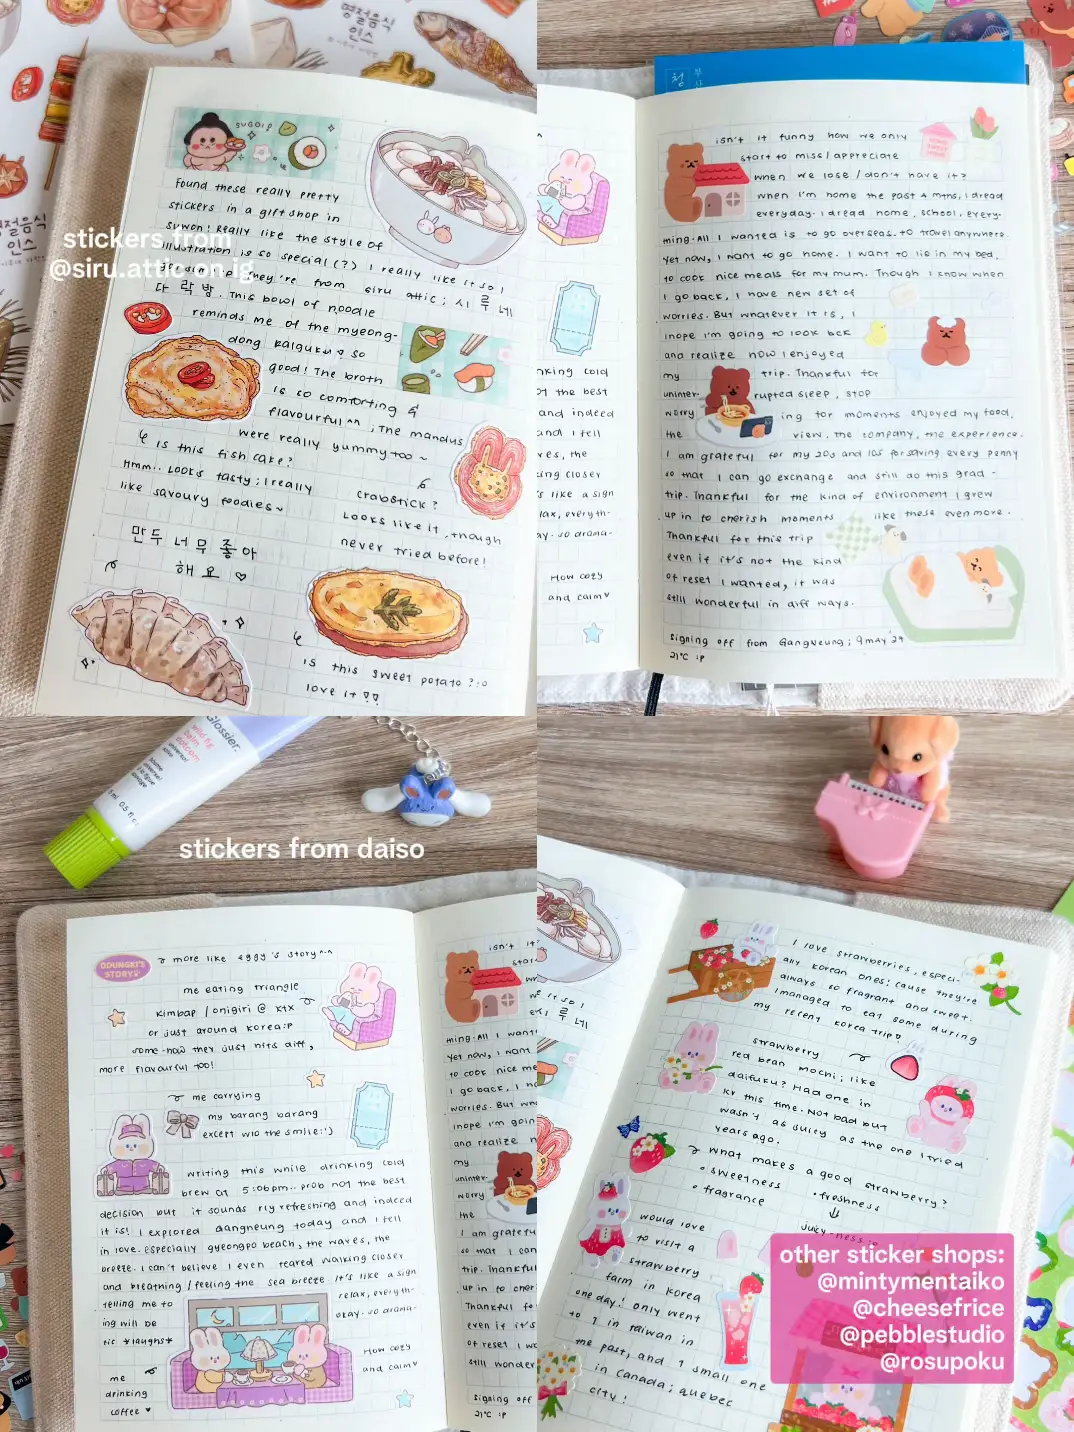 명절음식
인스
SUGOI!
Found these really pretty
stickers in a giftshop in
suwon! Really like the style of
illustration is so special (?) I really like it so!
they're from siru attic; 시루네
다락방. This bowl of noodle
reminds me of the myeong-
dong kalguksu so
good! The broth
is so comforting &
flavourful^^, The mandus
were really yummy too~
is this fish cake?
Hmm.. Looks tasty; I really
like savoury foodies~
crabstick?
Looks like it, though
never tried before!
만두 너무 좋아
해요 ♡
is this sweet potato?:o
love it !!
stickers from
@siru.attic on ig
isn't it funny how we only
start to miss/appreciate
when we lose/don't have it?
when I'm home the past 4 mths, i dread
everyday. i dread home, school, every-
thing. All I wanted is to go overseas. to travel anywhere.
Yet now, I want to go home. I want to lie in my bed,
to cook nice meals for my mum. Though I know when
I go back, I have new set of
worries. But whatever it is, I
hope I'm going to look back
and realize how I enjoyed
my trip. Thankful for
uninter- rupted sleep, stop
worry ing for moments enjoyed my food,
the view, the company, the experience.
I am grateful for my 20s and 10s for saving every penny
so that I can go exchange and still do this grad-
trip. Thankful for the kind of environment I grew
up in to cherish moments like these even more.
Thankful for this trip
even if it's not the kind
of reset I wanted, it was
still wonderful in diff ways.
signing off from Gangneung; 9 may '24
21°C :p
nking cold
ot the best
and indeed
and I tell
ves, the
king closer
s like a sign
lax, everyth-
ay. so drama-
How cozy
and calm♥
Glossier.
balm
dotcom
stickers from daiso
DDUNGKI'S
STORY
more like eggy's story^^
me eating triangle
kimbap / onigiri @ ktx
or just around korea:p
some-how they just hits diff,
more flavourful too!
me carrying
my barang barang
except w/o the smile:')
writing this while drinking cold
brew at 5:06pm.. prob not the best
decision but it sounds rly refreshing and indeed
it is! I explored gangneung today and I fell
in love. especially gyeongpo beach, the waves, the
breeze. I can't believe I even feared walking closer
and breathing/feeling the sea breeze it's like a sign
telling me to relax, everyth-
ing will be okay. so drama-
tic *laughs*
How cozy
and calm♥
me
drinking
coffee ♥
isn't it
start
ming. All I want
Yet now, I want
to cook nice me
I go back, I h
worries. But wh
hope I'm goin
and realize h
my
uninter-
worry
the
I am gratefu
so that I can
trip. Thankful
up in to cher
Thankful fo
even if it's
of reset I w
still wonder
signing off
21°C :p
I love strawberries, especi-
ally korean ones! cause they're
always so fragrant and sweet.
I managed to eat some during
my recent korea trip♡
strawberry
red bean mochi; like
daifuku? Had one in
kr this time. Not bad but
wasn't as juicy as the one I tried
years ago.
what makes a good strawberry?
• sweetness • freshness
• fragrance
juicy-ness
would love
to visit a
strawberry
farm in korea
one day! only went
to 1 in taiwan in
the past, and 1 small one
in canada; quebec
city!
other sticker shops:
@mintymentaiko
@cheesefrice
@pebblestudio
@rosupoku